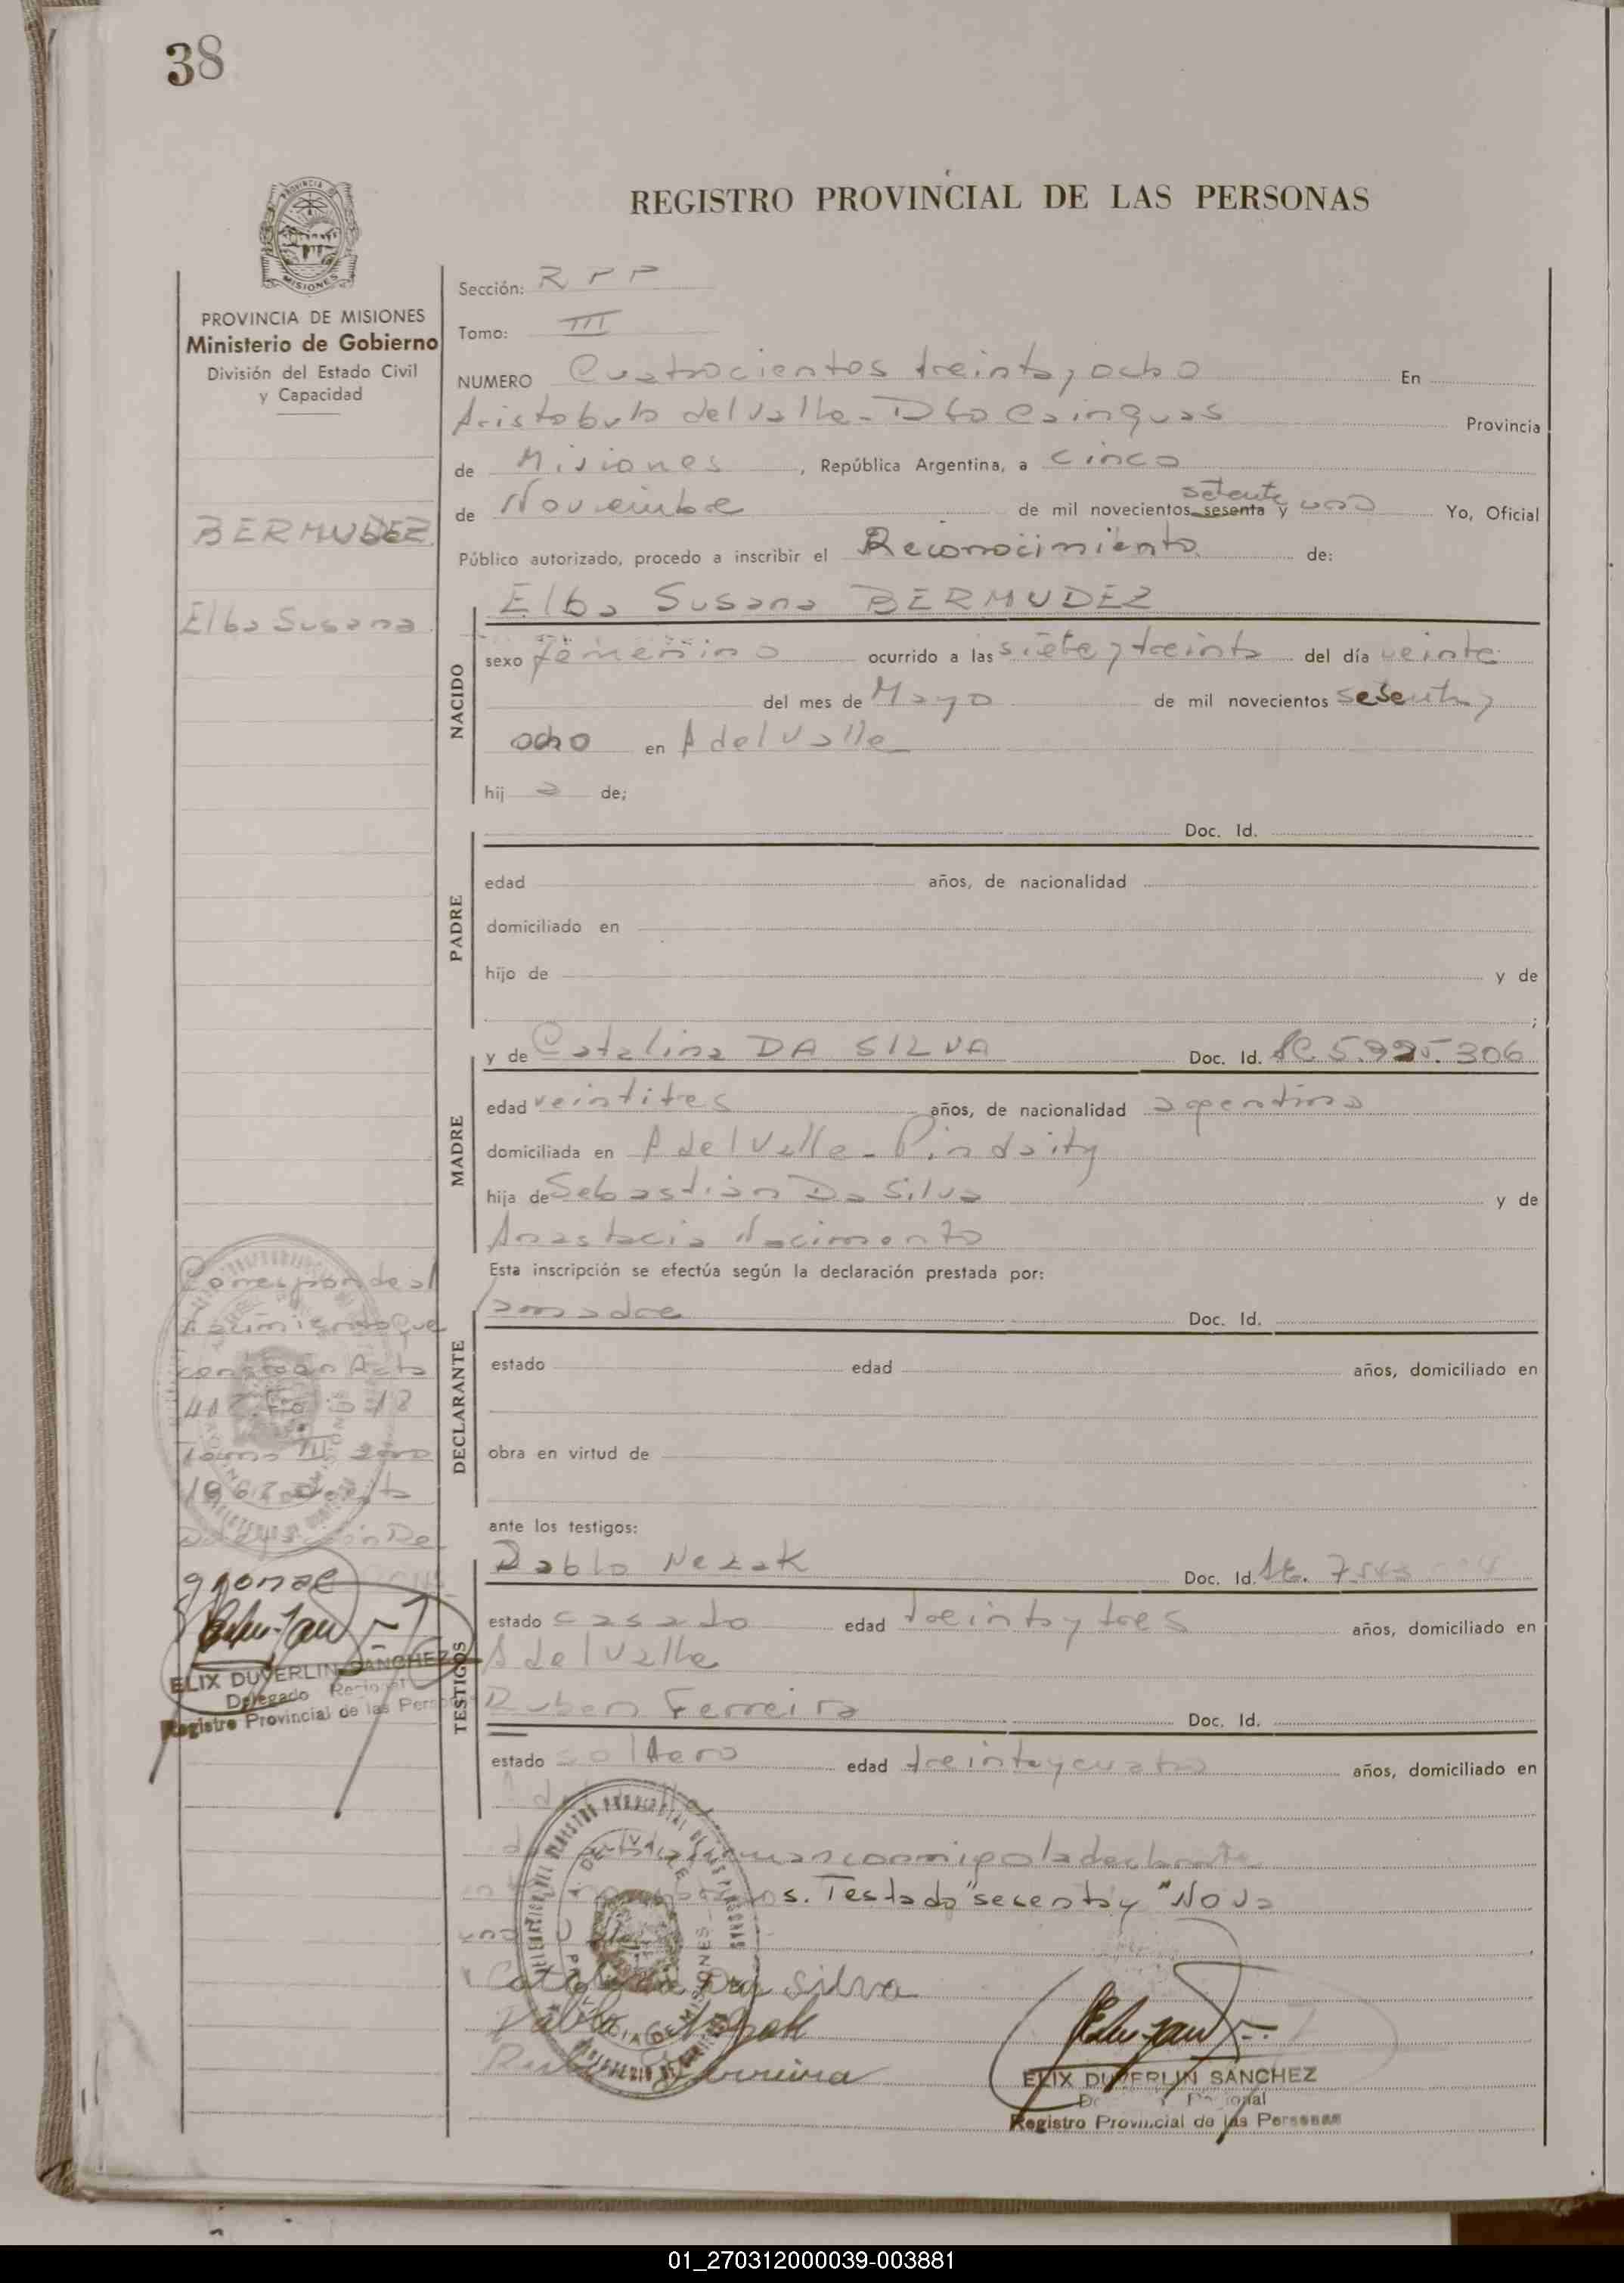 38
REGISTRO PROVINCIAL DE LAS PERSONAS
PROVINCIA DE
MISIONES
PROVINCIA DE MISIONES
Ministerio de Gobierno
División del Estado Civil
y Capacidad
BERMUDEZ
Elba Susana
Sección: R P P
Tomo: III
NUMERO Cuatrocientos treinta y ocho En
Aristobulo del Valle - Dto Cainguas Provincia
de Misiones, República Argentina, a cinco
setenta
de Noviembre de mil novecientos sesenta y uno Yo, Oficial
Público autorizado, procedo a inscribir el Reconocimiento de:
Elba Susana BERMUDEZ
NACIDO
sexo femenino ocurrido a las siete y treinta del día veinte
del mes de Mayo de mil novecientos sesenta y
ocho en A del Valle
hij a de;
PADRE
Doc. Id.
edad años, de nacionalidad
domiciliado en
hijo de y de
;
MADRE
y de Catalina DA SILVA Doc. Id. LC. 5.995.306
edad veintitres años, de nacionalidad argentina
domiciliada en A del Valle - Pindaity
hija de Sebastián Da Silva y de
Anastacia Nacimento
Esta inscripción se efectúa según la declaración prestada por:
DECLARANTE
La madre Doc. Id.
estado edad años, domiciliado en
obra en virtud de
ante los testigos:
TESTIGOS
Pablo Nezak Doc. Id.
estado casado edad treinta y tres años, domiciliado en
A del Valle
Ruben Ferreira Doc. Id.
estado soltero edad treinta y cuatro años, domiciliado en
A del Valle
conmigo la declarante
s. Testado "secenta y" No va
Catalina Da Silva
Pablo Nezak
Ruben Ferreira
ELIX DUVERLIN SANCHEZ
Registro Provincial de las Personas
Corresponde al
nacimiento que
consta en Acta
Tomo III
ELIX DUVERLIN SANCHEZ
Delegado Regional
Registro Provincial de las Personas
01_270312000039-003881